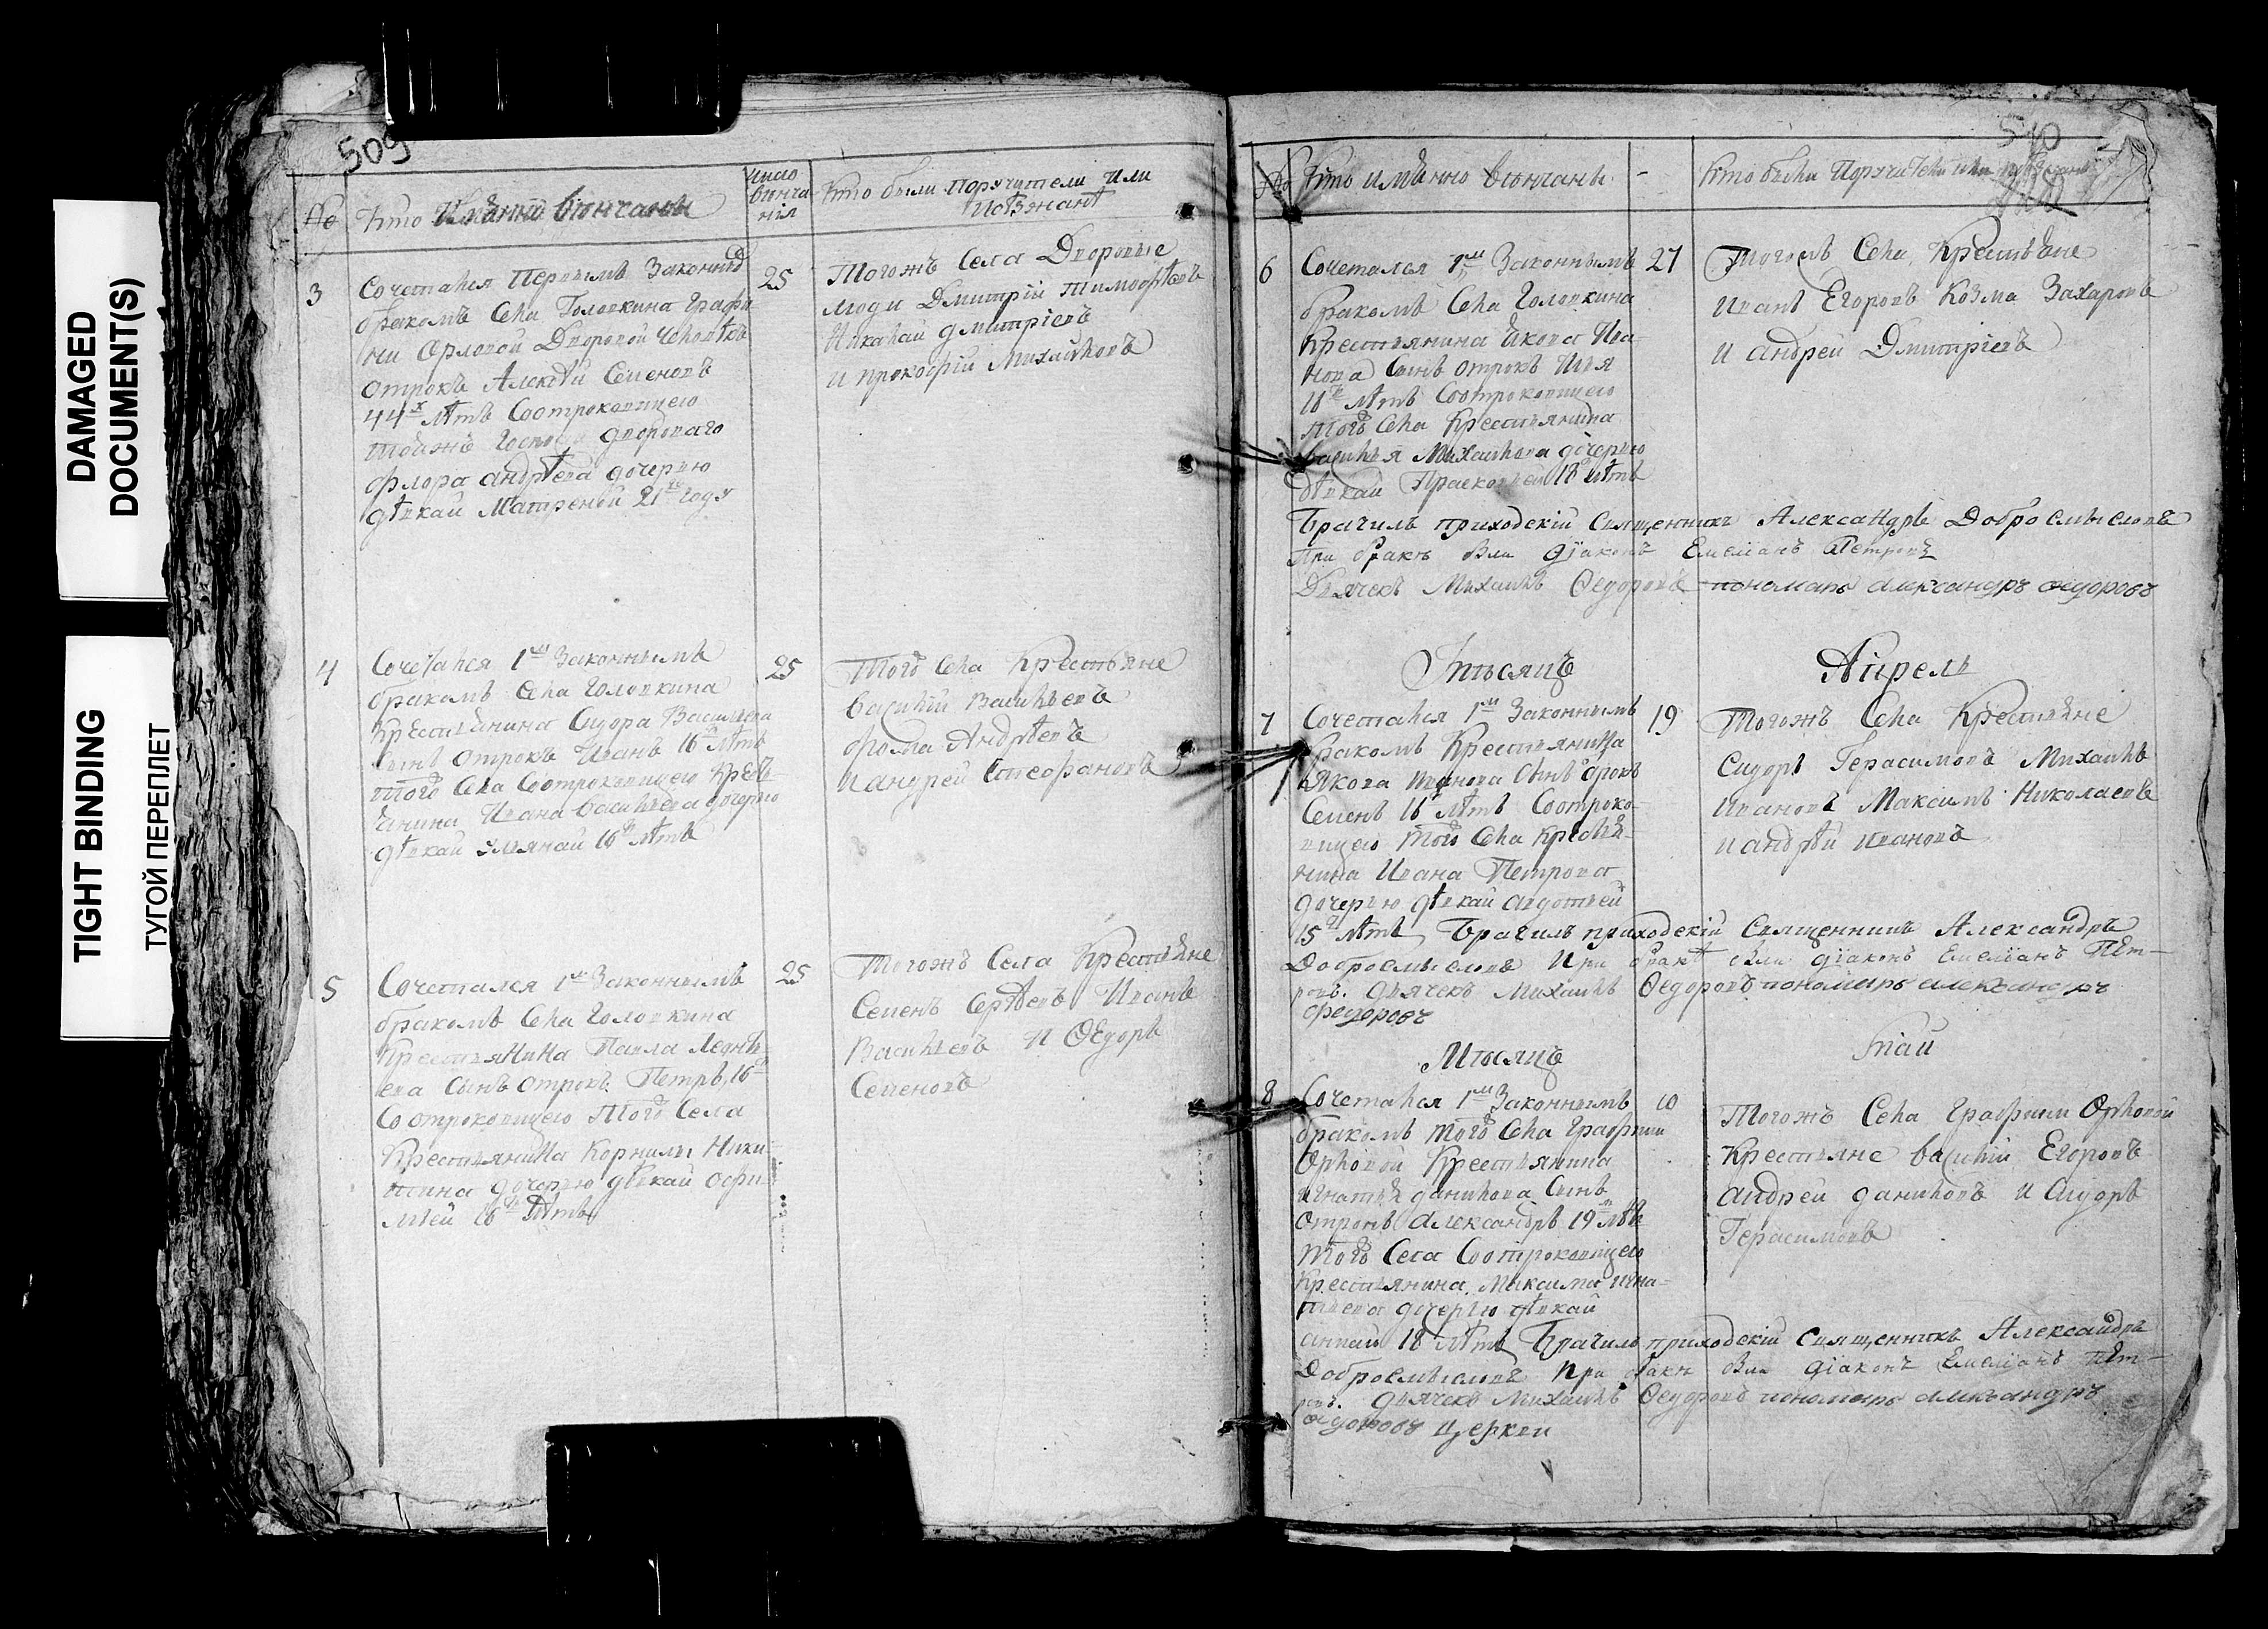 DAMAGED
DOCUMENT(S)
TIGHT BINDING
ТУГОЙ ПЕРЕПЛЕТ
509
№ Кто имянно вѣнчаны
число
вѣнча
нія
Кто были поручители или
поѣзжанѣ
3
Сочетался первымъ законны
бракомъ села Головкина Графи
ни Орловой дворовой человѣкъ
отрокъ Алексѣй Семеновъ
44х лѣтъ соотроковицею
тойжъ госпо дворового
Флора Андрѣева дочерью
дѣвкай Матреной 21 году
25
Тогожъ села дворовые
люди Дмитрій Тимофѣевъ
Николай Дмитріевъ
и Прокофій Михайловъ
4
Сочетался 1мъ законнымъ
бракомъ села Головкина
крестьянина Сидора Васильева
сынъ отрокъ Иванъ 16 лѣтъ
того села соотроковицею кресть
янина Ивана Васильева дочерью
дѣвкай Ульянай 16 лѣтъ
25
Того села крестьяне
Василій Васильевъ
Фома Андрѣевъ
и Андрей Стефановъ
5
Сочетался 1мъ законнымъ
бракомъ села Головкина
крестьянина Павла Леонть
ева сынъ отрокъ Петръ 16
соотроковицею того села
крестьянина Корнилы Ники
тина дочерью дѣвкай Офи
мьей 16 лѣтъ
25
Тогожъ села крестьяне
Семенъ Сергѣевъ Иванъ
Васильевъ и Ѳедоръ
Семеновъ
510
№ Кто имянно вѣнчаны
Кто были поручители или
6
Сочетался 1мъ законнымъ
бракомъ села Головкина
крестьянина Якова Ива
нова сынъ отрокъ Илья
18 лѣтъ соотроковицею
того села крестьянина
Василья Михайлова дочерью
дѣвкай Прасковьей 18 лѣтъ
27
Тогожъ села крестьяне
Иванъ Егоровъ Козма Захаровъ
и Андрей Дмитріевъ
Брачилъ приходскій священникъ Александръ Добросмысловъ
При бракѣ были діаконъ Емеліанъ Петровъ
Дьячекъ Михаилъ Ѳедоровъ пономарь александръ ѳедоровъ
Мѣсяцъ Апрель
7
Сочетался 1мъ законнымъ
бракомъ крестьянина
Якова Иванова сынъ отрокъ
Семенъ 16 лѣтъ соотроко
вицею того села крестья
нина Ивана Петрова
дочерью дѣвкай Авдотьей
19
Тогожъ села крестьяне
Сидоръ Герасимовъ Михаилъ
Ивановъ Максимъ Николаевъ
и Андрѣй Ивановъ
15 лѣтъ Брачилъ приходскій священникъ Александръ
Добросмысловъ При бракѣ были діаконъ Емеліанъ Пет-
ровъ. дьячекъ Михаилъ Ѳедоровъ пономарь александръ
федоровъ
Мѣсяцъ Май
8
Сочетался 1мъ законнымъ
бракомъ того села Графини
Орловой крестьянина
Игнатья Данилова сынъ
отрокъ Александръ 19 лѣтъ
того села соотроковицею
крестьянина Максима Игна-
тьева дочерью дѣвкай
10
Тогожъ села Графини Орловой
крестьяне Василій Егоровъ
Андрей Даниловъ и Сидоръ
Герасимовъ
Аннай 18 лѣтъ Брачилъ приходскій священникъ Александръ
Добросмысловъ при бракѣ были діаконъ Емеліанъ Пет-
ровъ. дьячекъ Михаилъ Ѳедоровъ пономарь александръ
ѳедоровъ Церкви